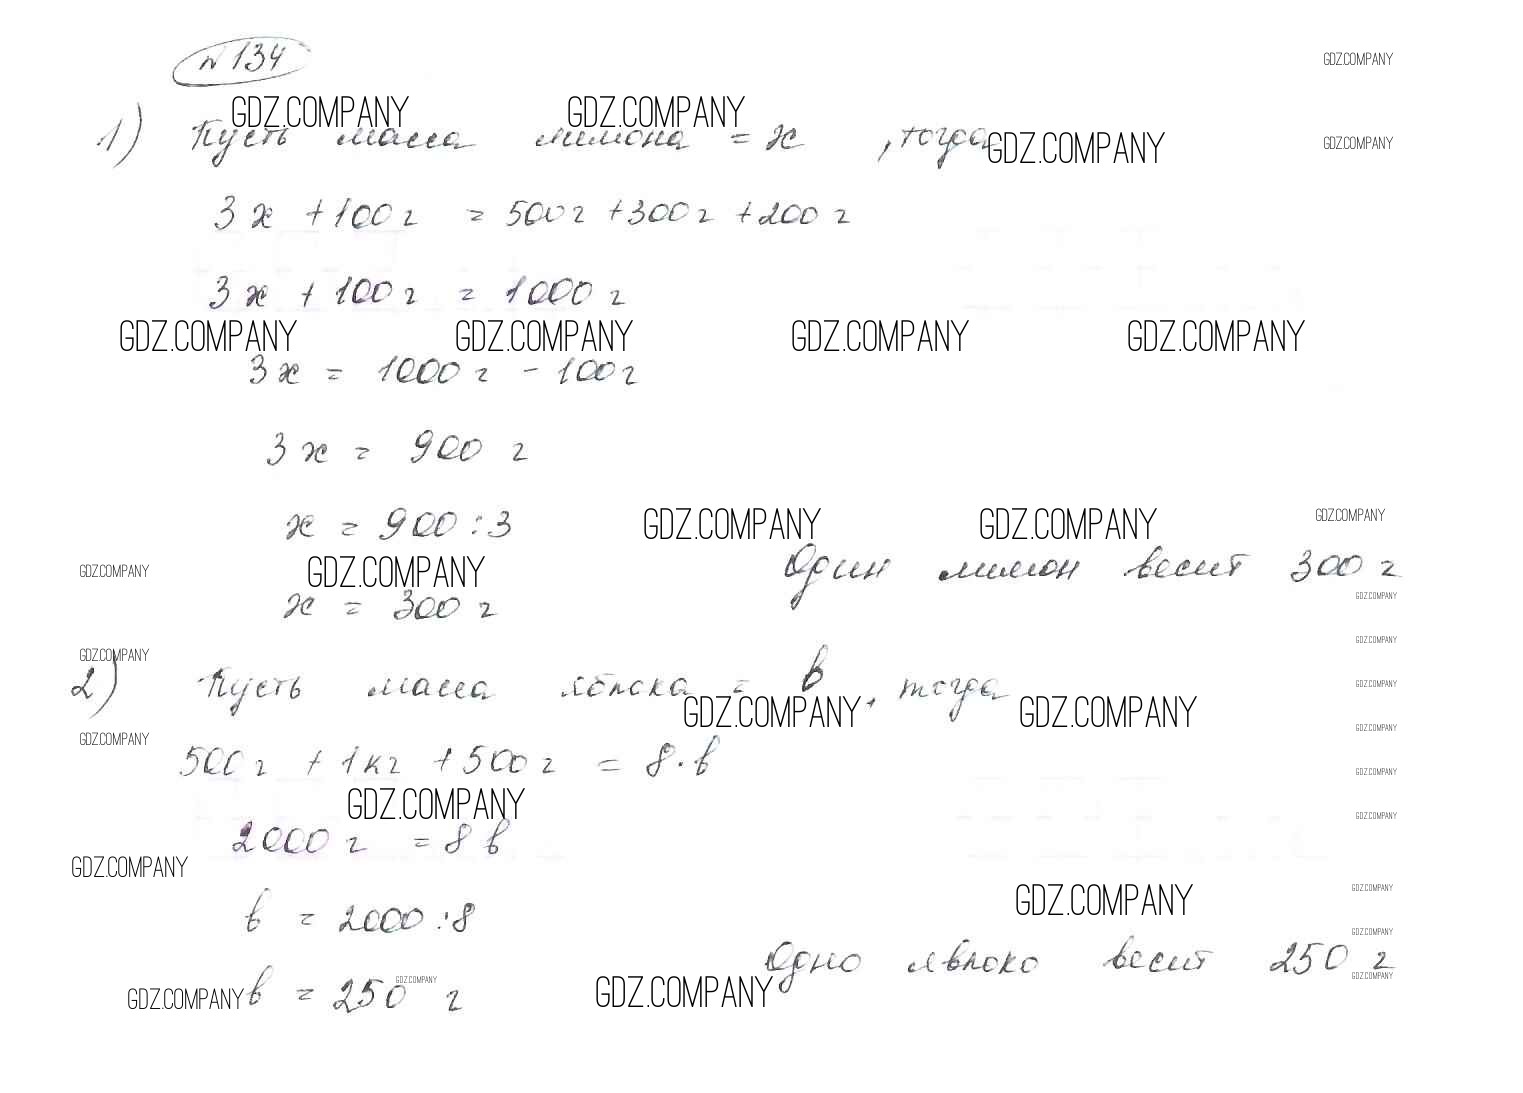 №134
GDZ.COMPANY
GDZ.COMPANY GDZ.COMPANY
1) Пусть масса лимона = x , тогда
GDZ.COMPANY GDZ.COMPANY
3x + 100 г = 500 г + 300 г + 200 г
3x + 100 г = 1000 г
GDZ.COMPANY GDZ.COMPANY GDZ.COMPANY GDZ.COMPANY
3x = 1000 г - 100 г
3x = 900 г
x = 900 : 3
GDZ.COMPANY GDZ.COMPANY GDZ.COMPANY
GDZ.COMPANY GDZ.COMPANY
Один лимон весит 300 г
GDZ.COMPANY
x = 300 г
GDZ.COMPANY
GDZ.COMPANY
2) Пусть масса яблока = в, тогда
GDZ.COMPANY
GDZ.COMPANY GDZ.COMPANY
GDZ.COMPANY
GDZ.COMPANY
500 г + 1 кг + 500 г = 8 · в
GDZ.COMPANY
GDZ.COMPANY
GDZ.COMPANY
2000 г = 8 в
GDZ.COMPANY
GDZ.COMPANY
GDZ.COMPANY
в = 2000 : 8
GDZ.COMPANY
Одно яблоко весит 250 г
GDZ.COMPANY
GDZ.COMPANY
GDZ.COMPANY
GDZ.COMPANY
в = 250 г